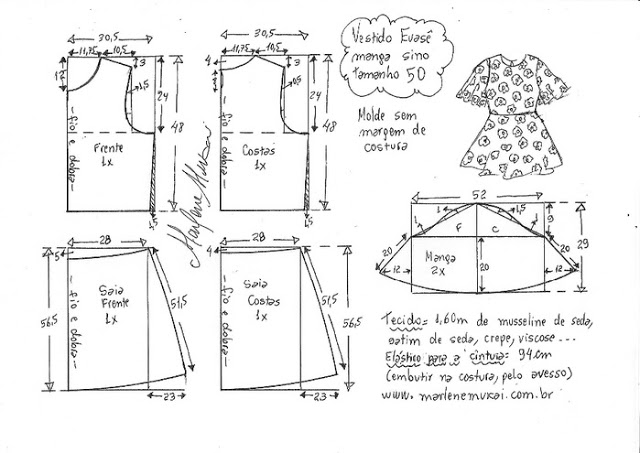 30,5
11,75
10,5
12
3
1,5
24
48
fio e dobra
Frente
1x
1,5
30,5
11,75
10,5
4
3
24
48
fio e dobra
Costas
1x
1,5
Marlene Mukai
Vestido Evasê
manga sino
tamanho 50
Molde sem
margem de
costura
28
5
56,5
fio e dobra
Saia
Frente
1x
51,5
23
28
4
fio e dobra
Saia
Costas
1x
51,5
56,5
23
52
1
1
F
C
1,5
1
9
29
20
12
Manga
2x
20
12
20
Tecido= 1,60m de musseline de seda,
cetim de seda, crepe, viscose...
Elástico para a cintura= 94cm
(embutir na costura, pelo avesso)
www.marlenemukai.com.br